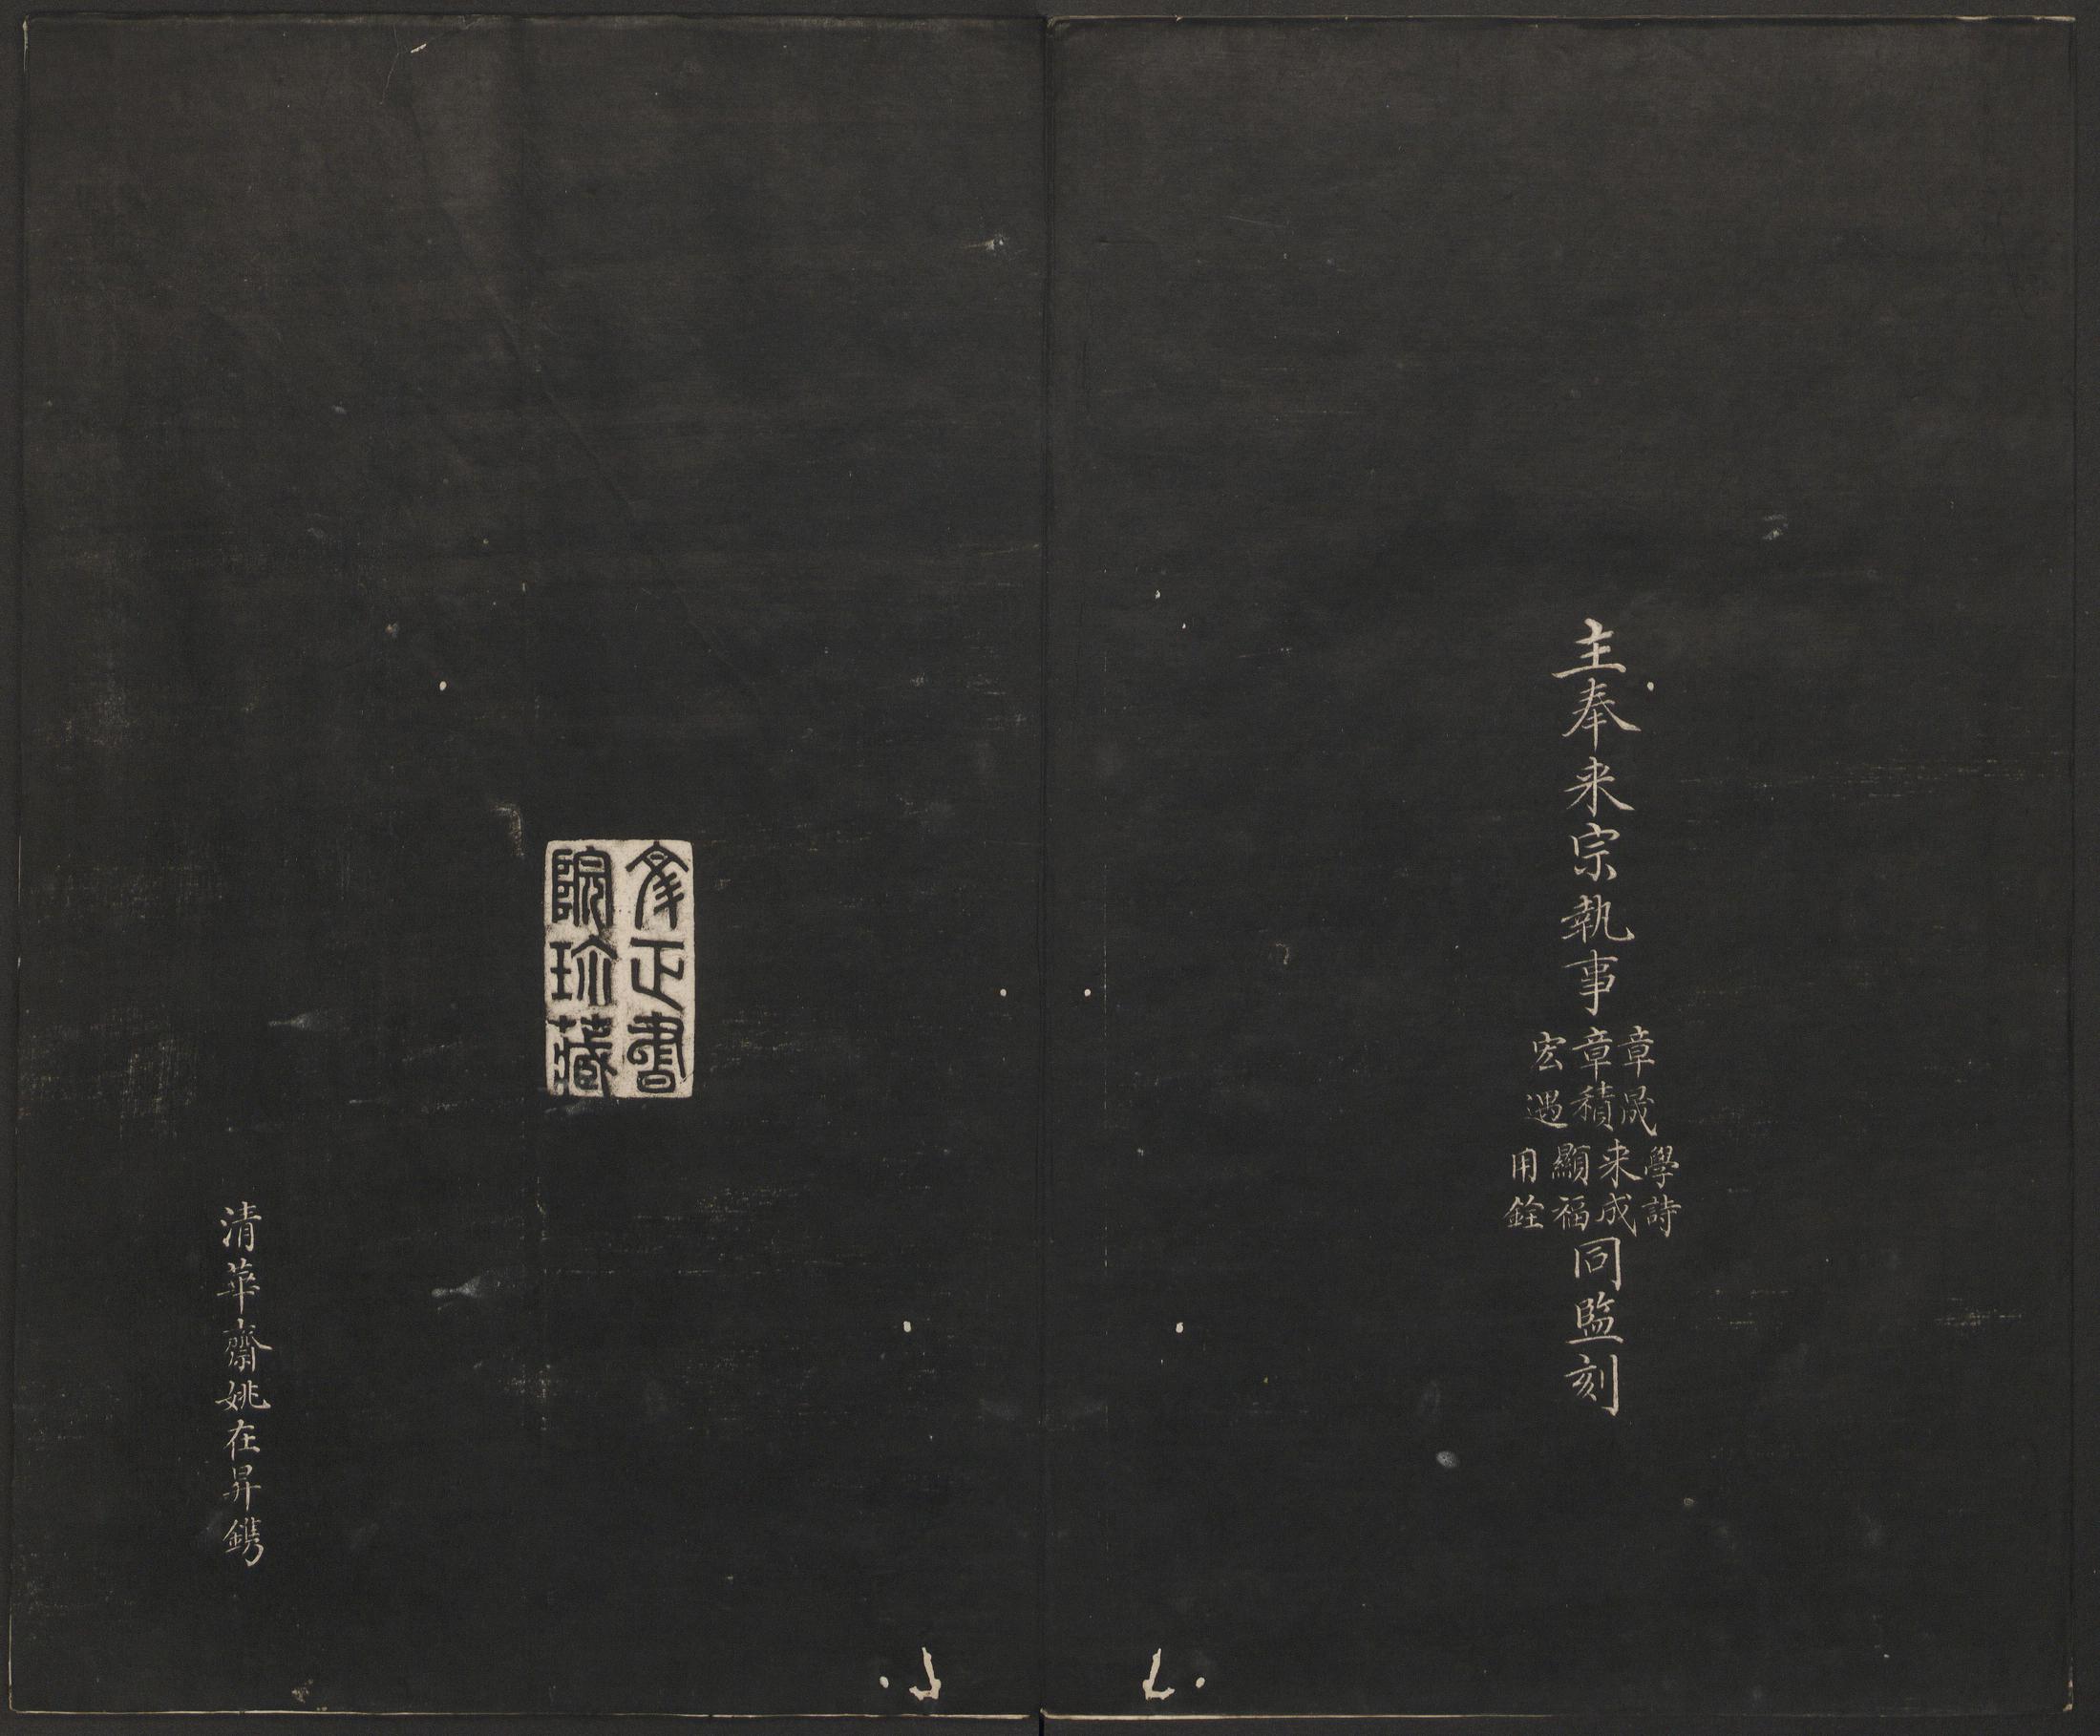 主奉来宗執事
章晟
章積
宏遇
學詩
来成
顯福
用銓
同監刻
文正書
院珍藏
清華齋姚在昇鐫